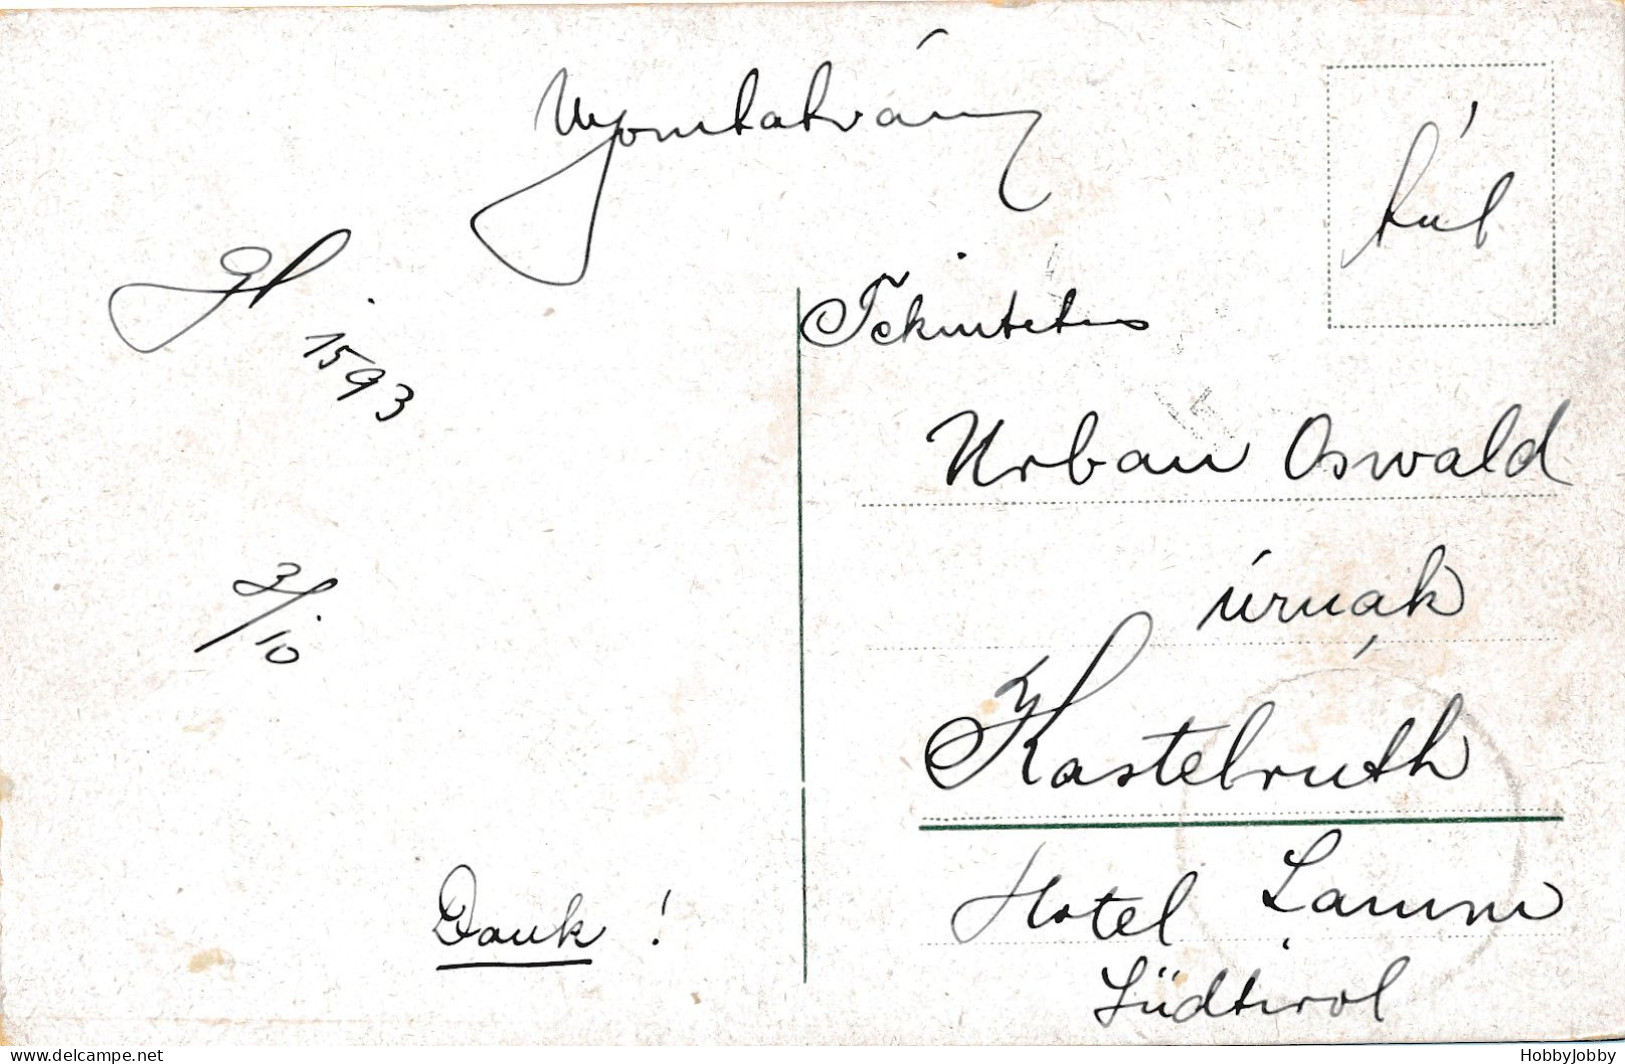 Nyomtatvány
túl
1593
3/10
Dank !
Tekintetes
Urban Oswald
úrnak
Kastelruth
Hotel Lamm
Südtirol
HobbyJobby
www.delcampe.net